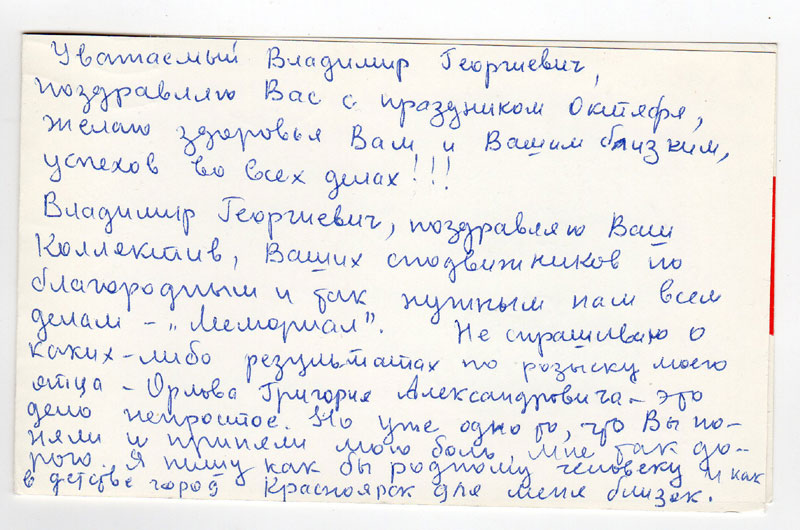 Уважаемый Владимир Георгиевич,
поздравляю Вас с праздником Октября,
желаю здоровья Вам и Вашим близким,
успехов во всех делах!!!
Владимир Георгиевич, поздравляю Ваш
Коллектив, Ваших сподвижников по
благородным и так нужным нам всем
делам – „Мемориал”. Не спрашиваю о
каких-либо результатах по розыску моего
отца – Орлова Григория Александровича – это
дело непростое. Но уже одно то, что Вы по-
няли и приняли мою боль, мне так до-
рого. Я пишу как бы родному человеку и как
в детстве город Красноярск для меня близок.